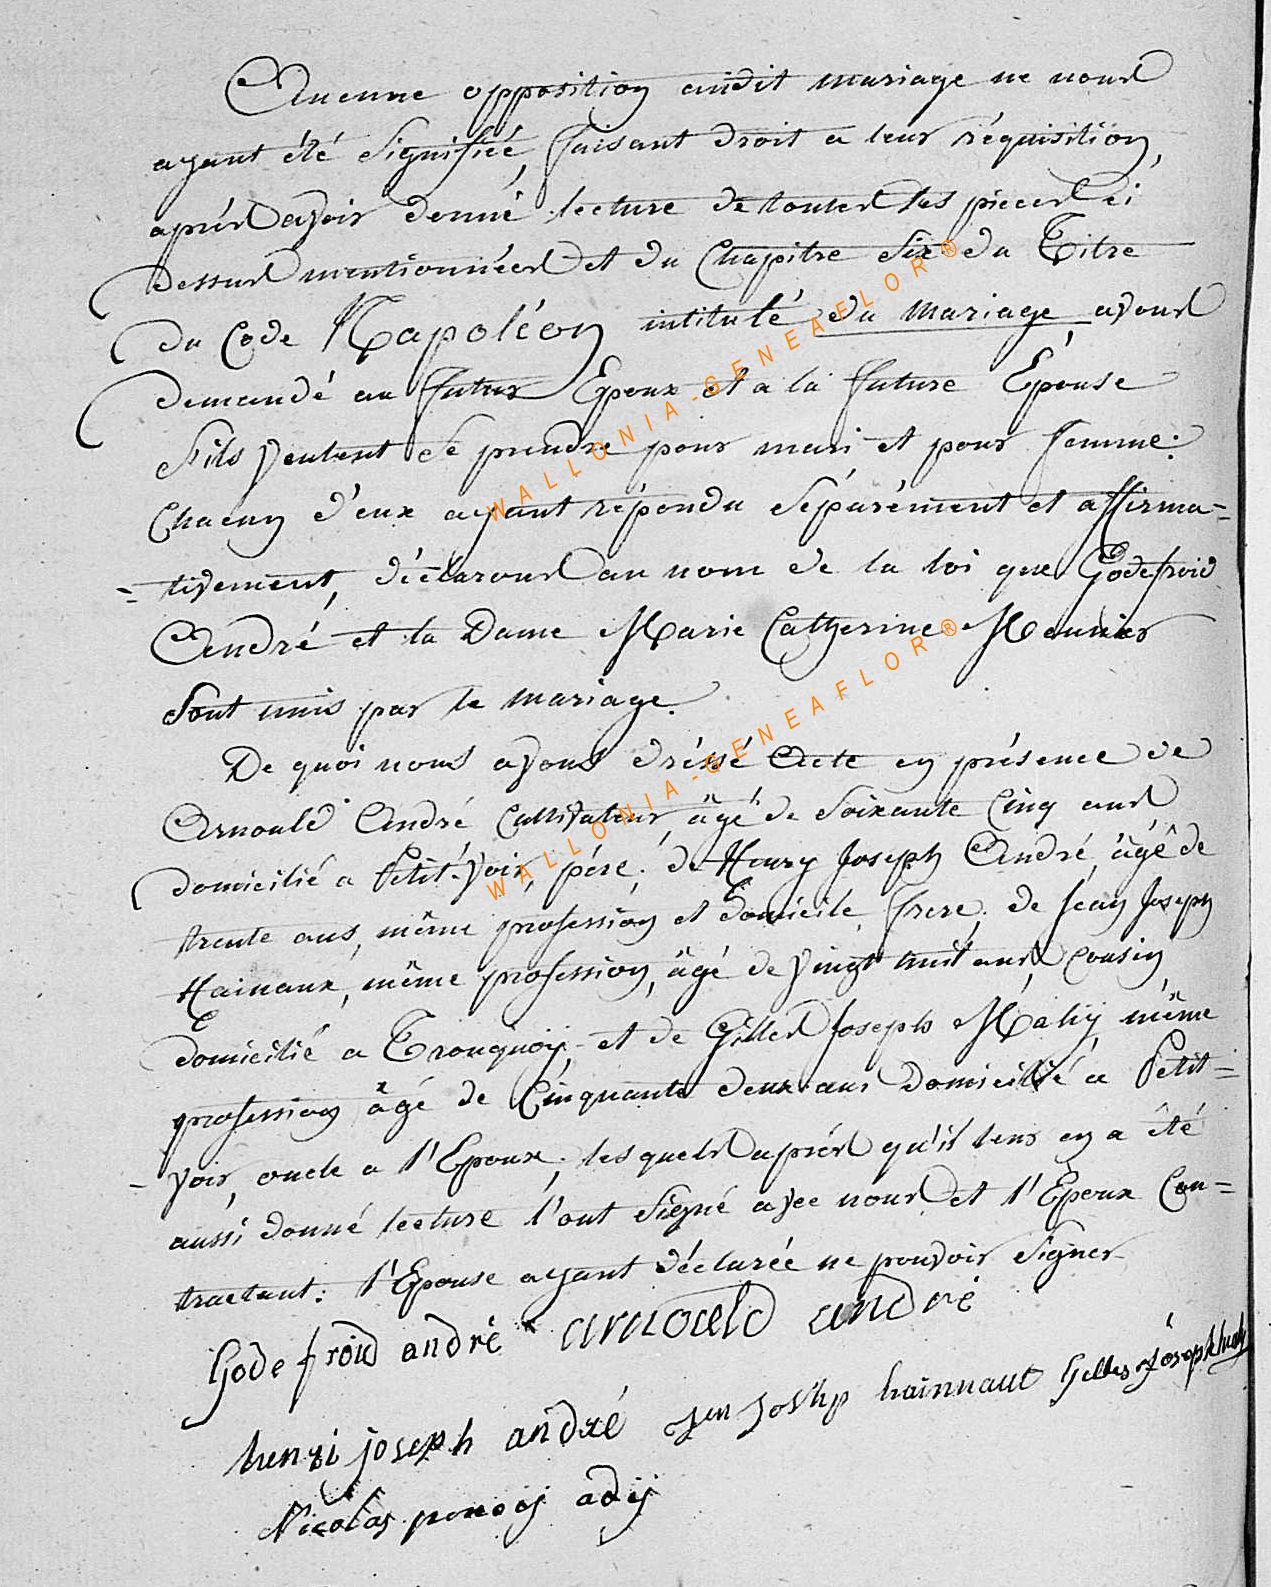 Aucune opposition audit mariage ne nous
ayant été signifiée, faisant droit a leur réquisition,
aprés avoir donné lecture de toutes les pieces ci
dessus mentionnées et du Chapitre Six du Titre
du Code Napoléon intitulé du mariage, avons
demandé au futur Epoux et a la future Épouse
S'ils veulent se prendre pour mari et pour femme:
Chacun d'eux ayant répondu séparément et affirma=
=tivement, déclarons au nom de la loi que Godefroid
André et la Dame Marie Catherine Meunier
Sont unis par le mariage.
De quoi nous avons dréssé Acte en présence de
Arnould André Cultivateur, âgé de Soixante Cinq ans
domicilié a Petit-Voir, pére; de Henry Joseph André, âgé de
trente ans, même profession et domicile, frere; de Jean Joseph
Hainaux, même profession, âgé de vingt huit ans, cousin,
domicilié a Tronquoÿ et de Gilles Joseph Mahy, même
profession âgé de Cinquante deux ans domicilié a Petit=
-voir, oncle a l'Epoux; lesquels aprés qu'il leur en a été
aussi donné lecture l'ont signé avec nous et l'Epoux Con=
tractant: l'Epouse ayant déclarée ne pouvoir signer
Godefroid andré arnould andré
henri joseph andré jen joshp hainnaut Gilles Joseph
Nicolas adÿ
WALLONIA-GENEAFLOR®
WALLONIA-GENEAFLOR®